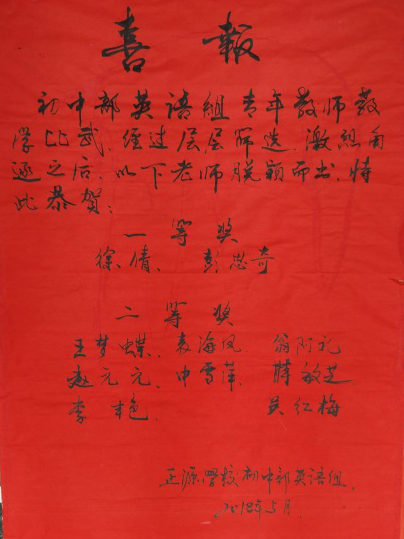 喜報
初中部英语組青年教师教
学比武,经过层层篩选,激烈角
逐之后,以下老师脱颖而出,特
此恭贺:
一等奖
徐倩、彭思奇
二等奖
王梦蝶、袁海凤、翁阿礼
赵元元、申雪萍、韩敏芝
李艳、吴红梅
正源學校初中部英语组
2018年5月